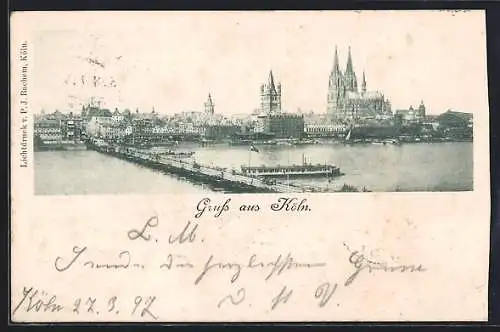 Lichtdruck v. P. J. Bachem, Köln.
Gruß aus Köln.
L. M.
Sende die herzlichsten Grüsse
Köln 27. 3. 97